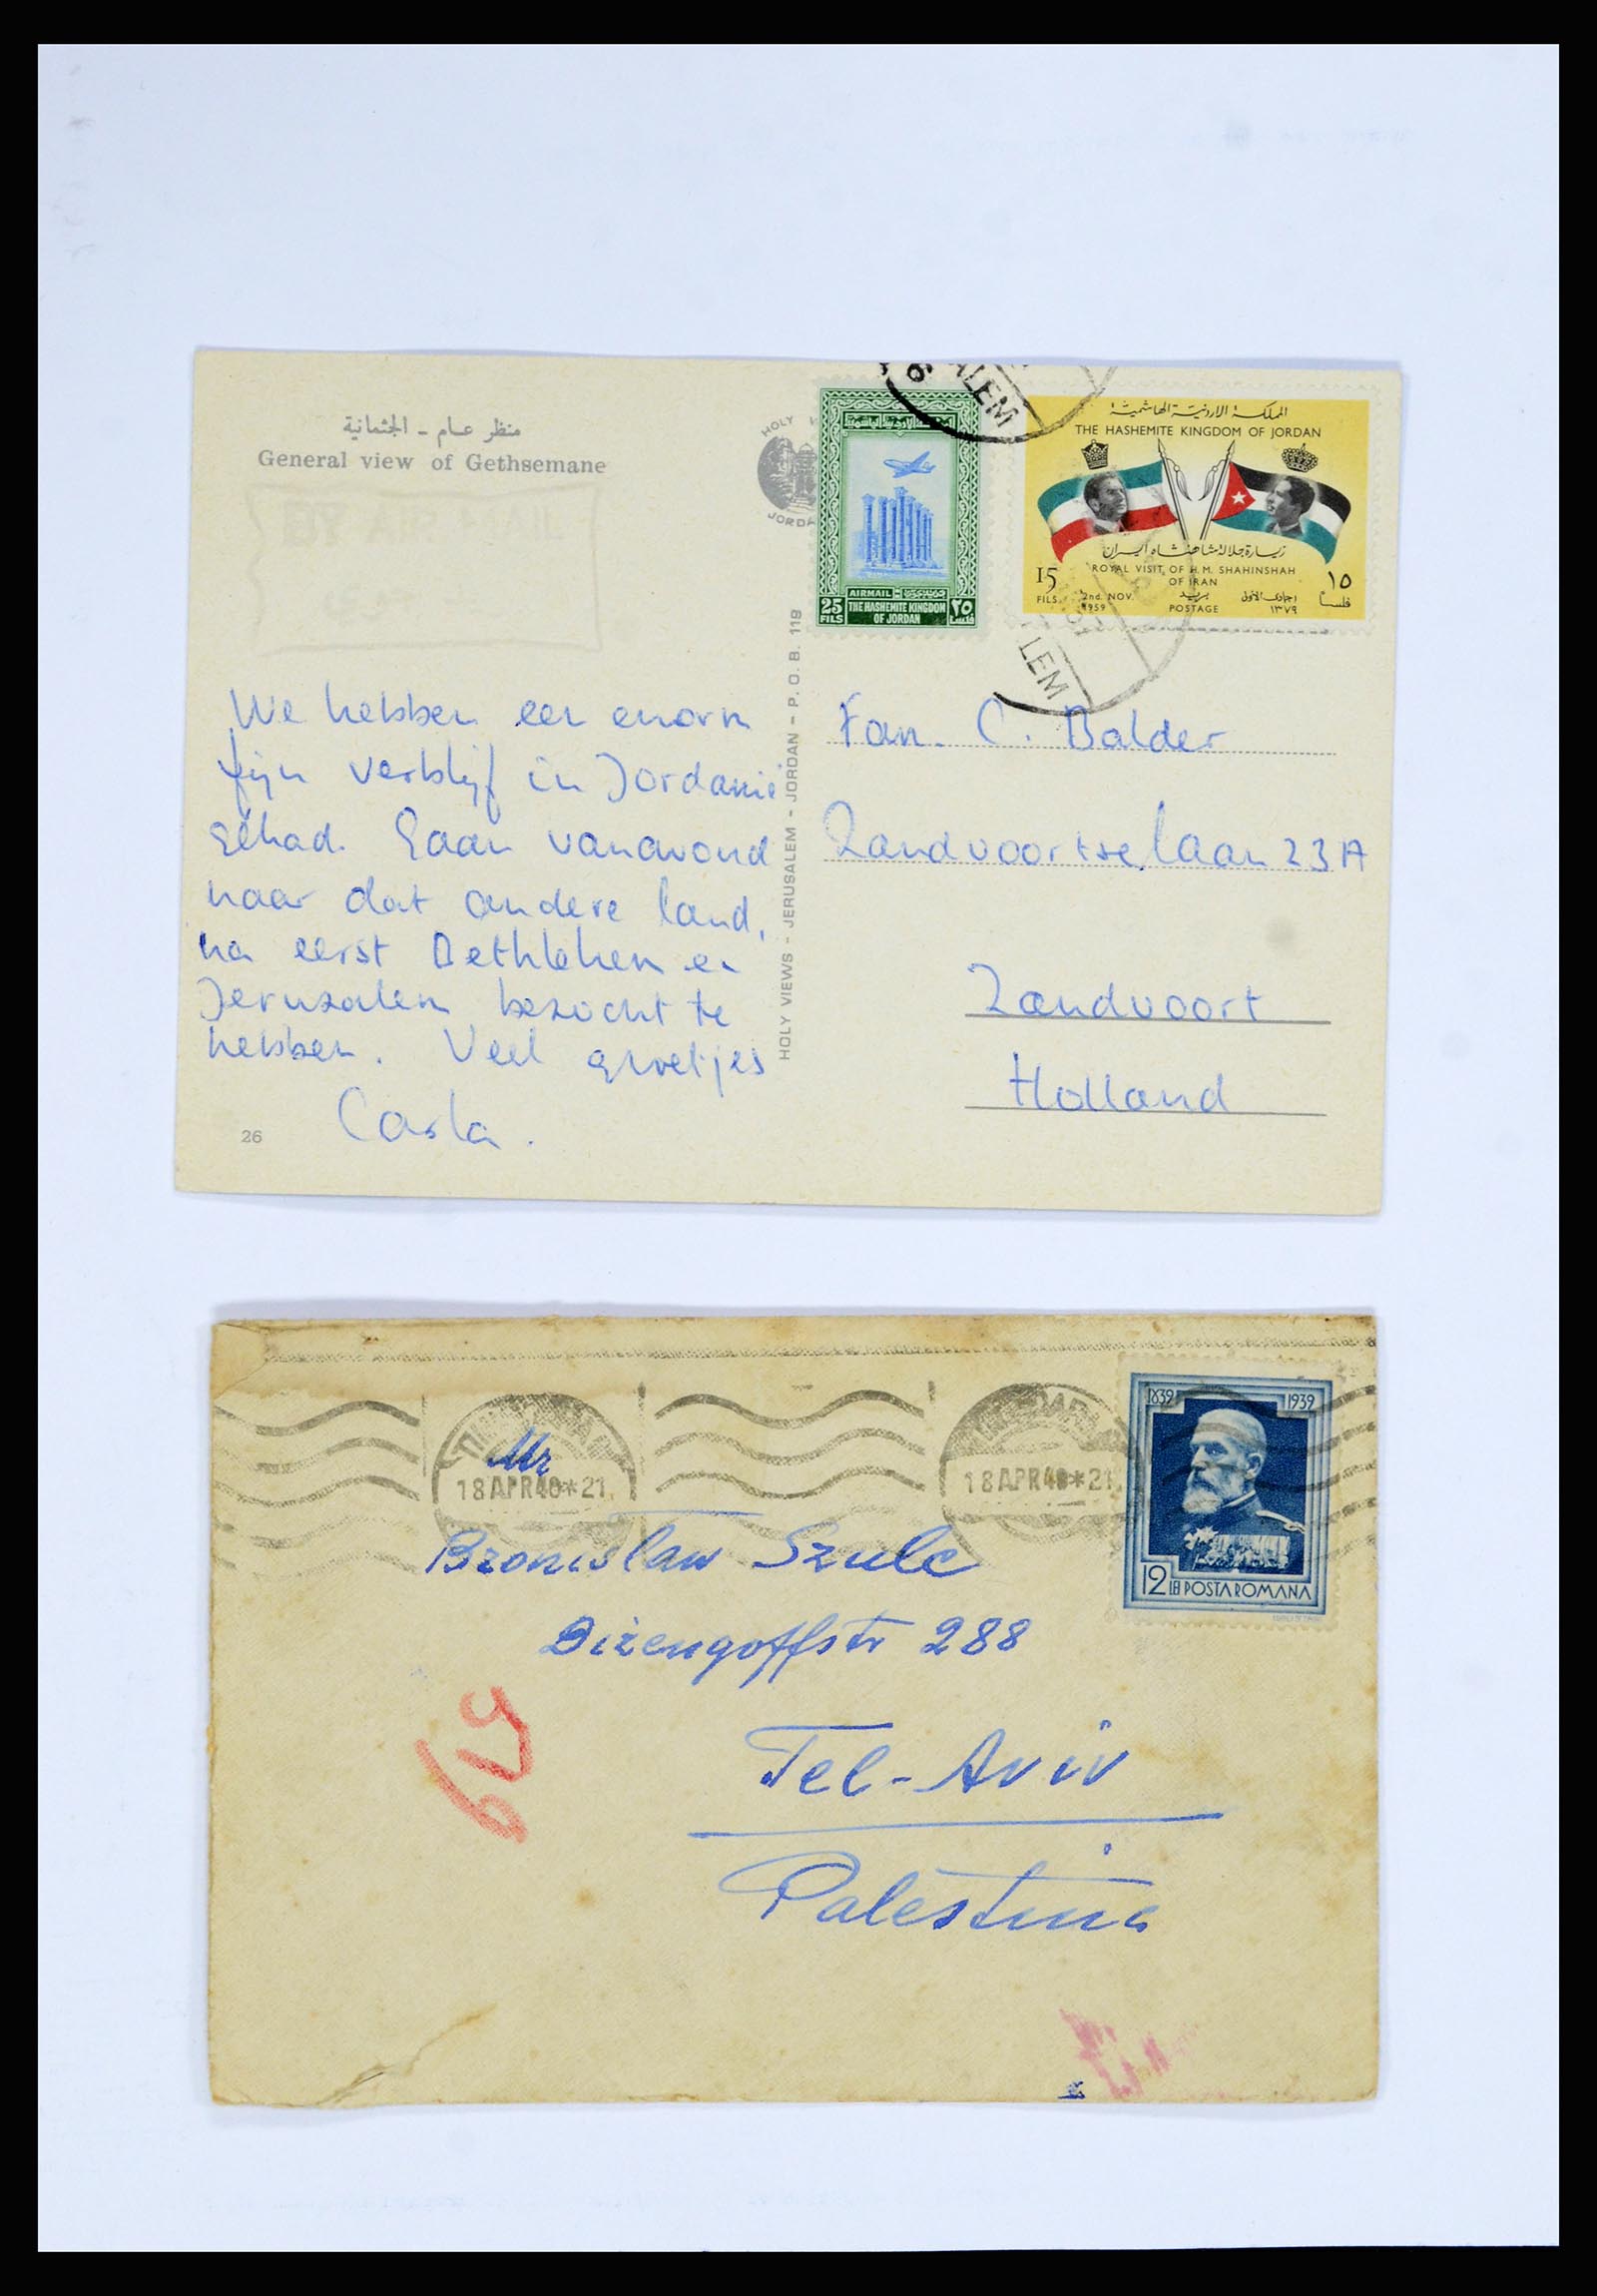 منظر عام - الجثمانية
General view of Gethsemane
BY AIR MAIL
HOLY
JORDA
6
ALEM
25
FILS
AIRMAIL
THE HASHEMITE KINGDOM
OF JORDAN
٢٥
فلسا
المملكة الاردنية الهاشمية
THE HASHEMITE KINGDOM OF JORDAN
زيارة جلالة شاهنشاه ايران
ROYAL VISIT OF H.M. SHAHINSHAH
OF IRAN
15
FILS
2nd. NOV.
1959
بريد
POSTAGE
١٣٧٩
١٥
فلسا
LEM
We hebben een enorm
fijn verblijf in Jordanië
gehad. Gaan vanavond
naar dat andere land,
na eerst Bethlehem en
Jeruzalem bezocht te
hebben. Veel groetjes
Carla.
26
HOLY VIEWS - JERUSALEM - JORDAN - P. O. B. 119
Fam. C. Balder
Zandvoortselaan 23A
Zandvoort
Holland
18 APR 40 * 21
18 APR 40 * 21
1839 1939
12 LEI POSTA ROMANA
Mr
Bronisław Szulc
Dizengoffstr 288
Tel-Aviv
Palestina
619